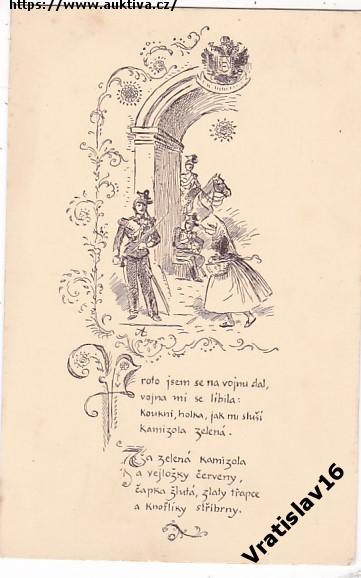 https://www.auktiva.cz/
Proto jsem se na vojnu dal,
vojna mi se líbila:
Koukni, holka, jak mi sluší
Kamizola zelená.
Ta zelená kamizola
a vejložky červeny,
čapka žlutá, zlaty třapce
a Knoflíky stříbrny.
Vratislav16